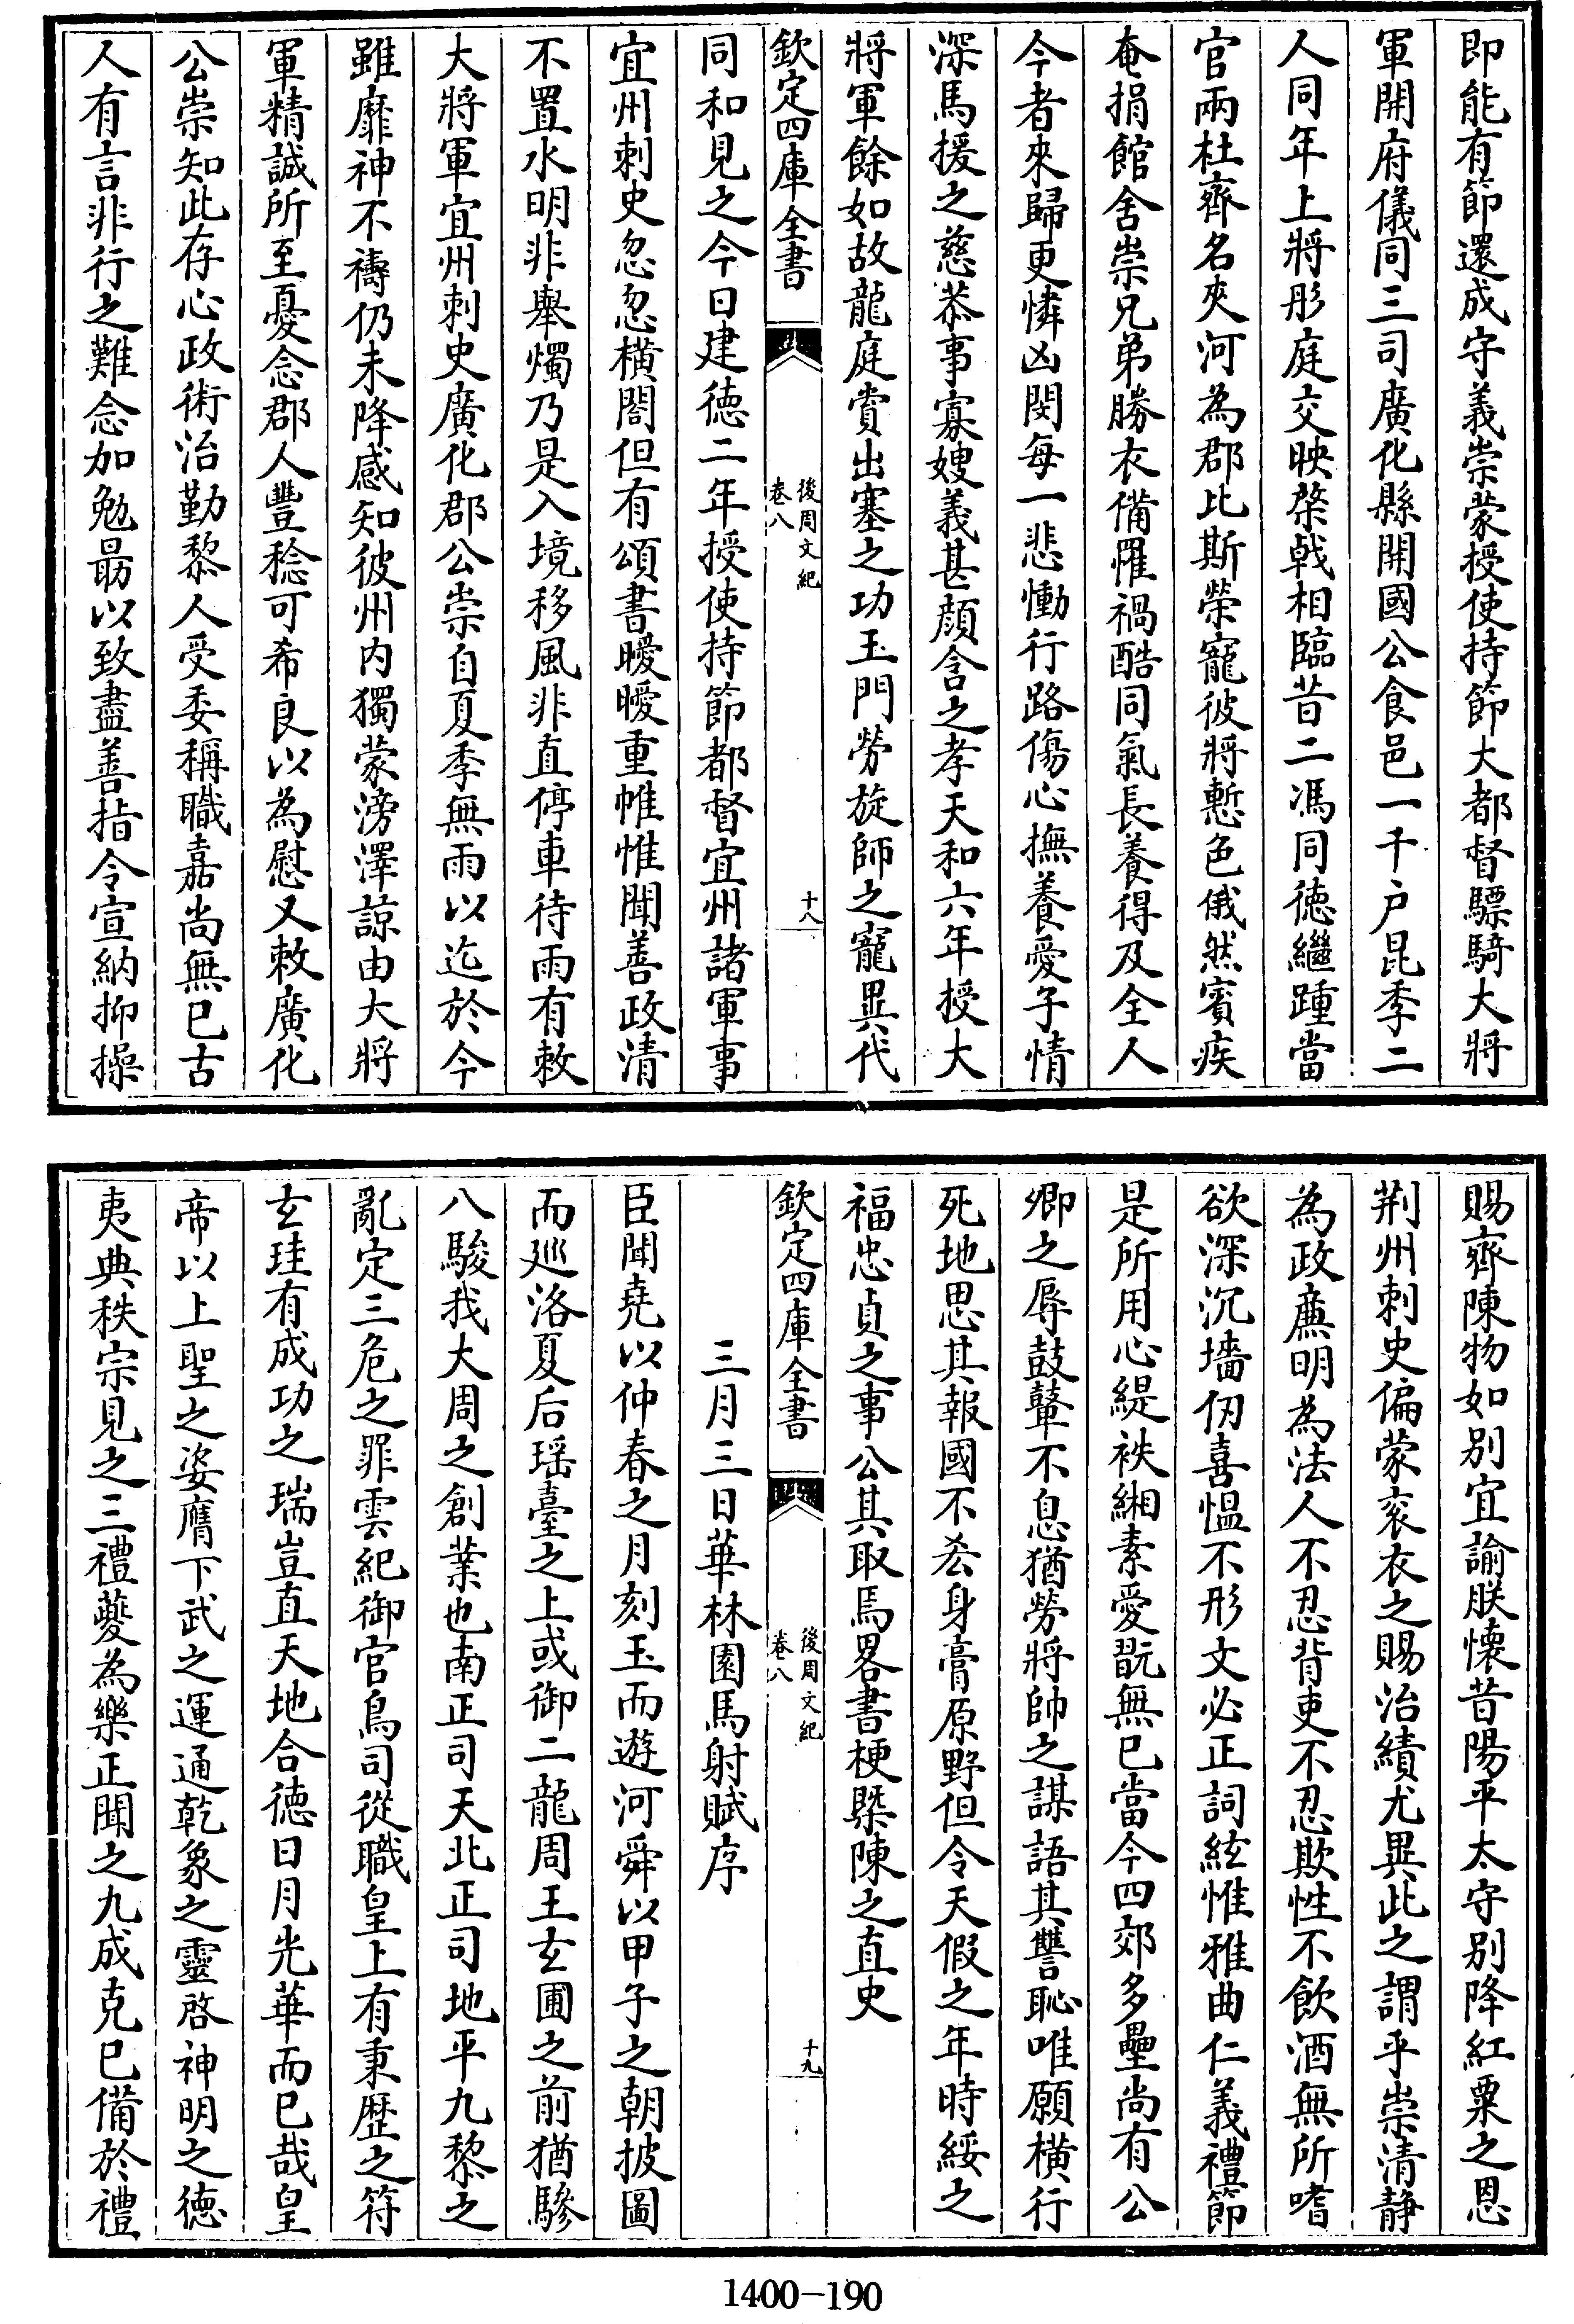 即能有節還成守義崇蒙授使持節大都督驃騎大將
軍開府儀同三司廣化縣開國公食邑一千户昆季二
人同年上將彤庭交映棨戟相臨昔二馮同徳繼踵當
官兩杜齊名夾河為郡比斯榮寵彼將慙色俄然賓疾
奄捐館舍崇兄弟勝衣備罹禍酷同氣長養得及全人
今者來歸更憐凶閔每一悲慟行路傷心撫養愛子情
深馬援之慈恭事寡嫂義甚顔含之孝天和六年授大
將軍餘如故龍庭賞出塞之功玉門勞旋師之寵異代
欽定四庫全書
後周文紀
卷八
十八
同和見之今日建徳二年授使持節都督宜州諸軍事
宜州刺史忽忽横閤但有頌書曖曖重帷惟聞善政清
不置水明非舉燭乃是入境移風非直停車待雨有敕
大將軍宜州刺史廣化郡公崇自夏季無雨以迄於今
雖靡神不禱仍未降感知彼州内獨蒙滂澤諒由大將
軍精誠所至憂念郡人豐稔可希良以為慰又敕廣化
公崇知此存心政術治勤黎人受委稱職嘉尚無已古
人有言非行之難念加勉勗以致盡善指令宣納抑操
賜齊陳物如别宜諭朕懐昔陽平太守别降紅粟之恩
荆州刺史偏蒙衮衣之賜治績尤異此之謂乎崇清静
為政亷明為法人不忍背吏不忍欺性不飲酒無所嗜
欲深沉墻仞喜愠不形文必正詞絃惟雅曲仁義禮節
是所用心緹袠緗素愛翫無已當今四郊多壘尚有公
卿之辱鼓鼙不息猶勞將帥之謀語其讐恥唯願横行
死地思其報國不忝身膏原野但令天假之年時綏之
福忠貞之事公其取焉畧書梗槩陳之直史
欽定四庫全書
後周文紀
卷八
十九
三月三日華林園馬射賦序
臣聞堯以仲春之月刻玉而遊河舜以甲子之朝披圖
而廵洛夏后瑶臺之上或御二龍周王玄圃之前猶驂
八駿我大周之創業也南正司天北正司地平九黎之
亂定三危之罪雲紀御官鳥司從職皇上有秉歴之符
玄珪有成功之瑞豈直天地合徳日月光華而已哉皇
帝以上聖之姿膺下武之運通乾象之靈啓神明之徳
夷典秩宗見之三禮䕫為樂正聞之九成克已備於禮
1400-190